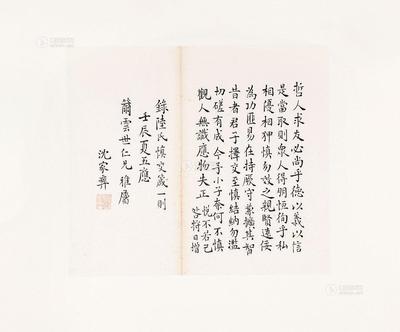 哲人求友必尚乎德以義以信
是當取則衆人得朋恆徇乎私
相優相狎慎勿效之親賢遠佞
為功匪易在持厥守兼擴其智
昔者君子擇交至慎結納勿濫
切磋有成今予小子奈何不慎
觀人無識應物失正悅不若己
咎將日增
錄陸氏慎交箴一則
壬辰夏五應
蘭雲世仁兄雅屬
沈家彝